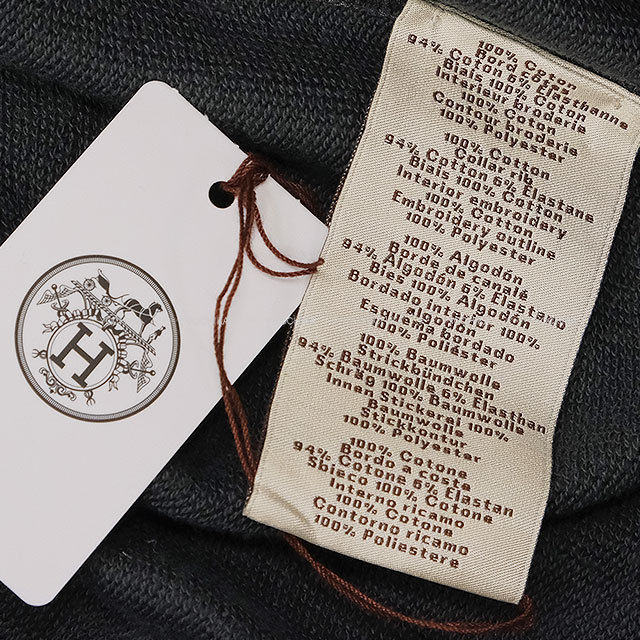 H
100% Coton
Bord côtes
94% Coton 6% Elasthanne
Biais 100% Coton
Interieur broderie
100% Coton
Contour broderie
100% Polyester
100% Cotton
Collar rib
94% Cotton 6% Elastane
Blais 100% Cotton
Interior embroidery
100% Cotton
Embroidery outline
100% Polyester
100% Algodón
Borde de canalé
94% Algodón 6% Elastano
Bies 100% Algodón
Bordado interior 100%
algodón
Esquema bordado
100% Poliéster
100% Baumwolle
Strickbündchen
94% Baumwolle 6% Elasthan
Schräg 100% Baumwolle
Innen Stickerei 100%
Baumwolle
Stickkontur
100% Polyester
100% Cotone
Bordo a coste
94% Cotone 6% Elastan
Sbieco 100% Cotone
Interno ricamo
100% Cotone
Contorno ricamo
100% Poliestere